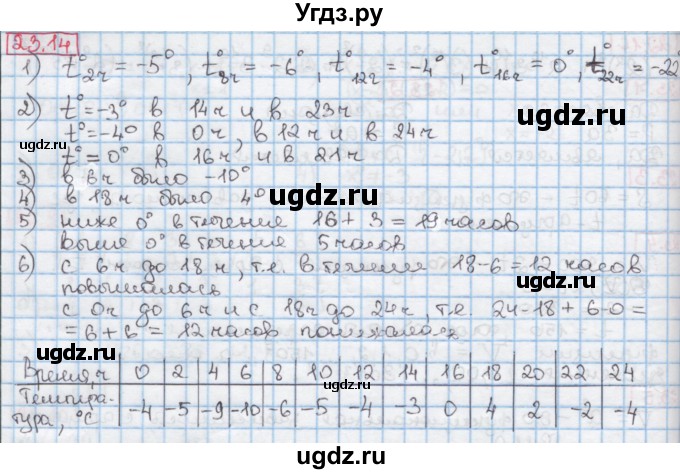 Угдз.ру
23.14
1) t°2ч = -5°, t°8ч = -6°, t°12ч = -4°, t°16ч = 0°, t°22ч = -22°
2) t°=-3° в 14ч и в 23ч
t°=-4° в 0ч, в 12ч и в 24ч
t°=0° в 16ч и в 21ч
3) в 6ч было -10°
4) в 18ч было 4°
5) ниже 0° в течение 16+3=19часов
выше 0° в течение 5часов
6) с 6ч до 18ч, т.е. в течение 18-6=12 часов
повышалась
с 0ч до 6ч и с 18ч до 24ч, т.е. 24-18+6-0=
=6+6=12часов понижалась
Время,ч 0 2 4 6 8 10 12 14 16 18 20 22 24
Темпира-
тура, °С -4 -5 -9 -10 -6 -5 -4 -3 0 4 2 -2 -4
ugdz.ru
ugdz.ru
ugdz.ru
ugdz.ru
ugdz.ru
ugdz.ru
ugdz.ru
ugdz.ru